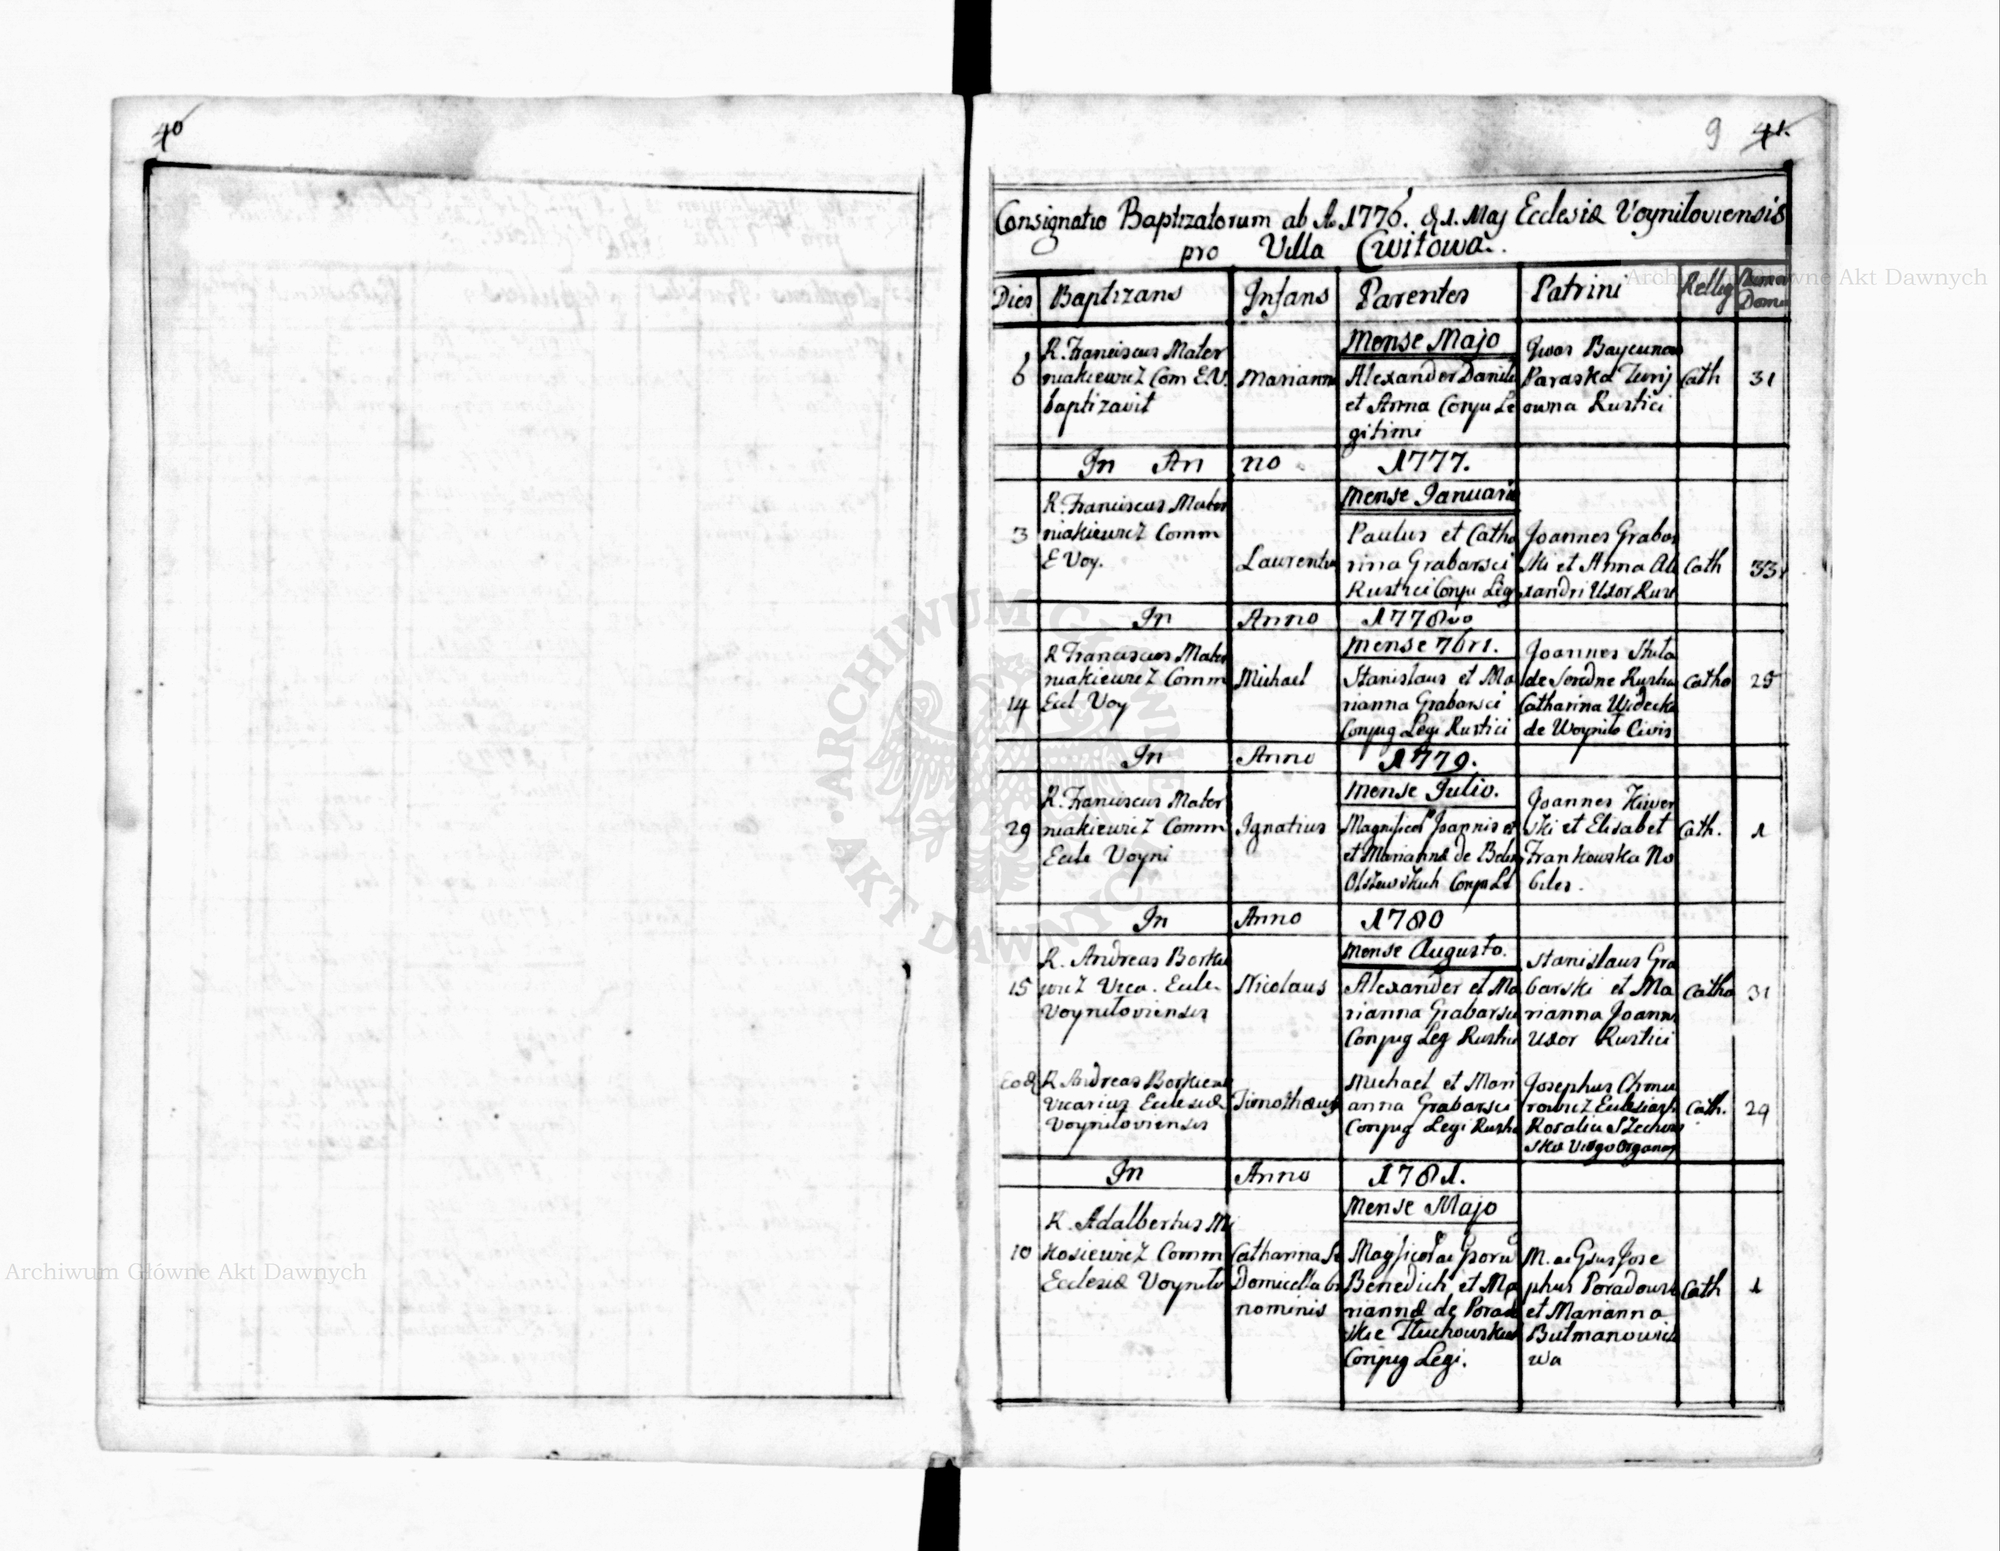 40
9 41.
Consignatio Baptizatorum ab Ao 1776. d. 1. Maj Ecclesiæ Voyniloviensis
pro Villa Cwitowa.
Dies Baptizans Infans Parentes Patrini Rellig Numer Domus
Mense Majo
6 R. Franciscus Mater
niakiewicz Com E.V.
baptizavit
Marianna
Alexander Danile
et Anna Conju Le
gitimi
Paraska Jurij
owna Rustici
Cath 31
In Anno 1777.
Mense Januario
3 R. Franciscus Mater
niakiewicz Comm
E Voy.
Laurentiu
Paulus et Catha
rina Grabarsci
Rustici Conju Leg
Joannes Grabar
ski et Anna Ale
xandri Uxor Rust
Cath 33
In Anno 1778vo
Mense 7bri.
14 R Franciscus Mater
niakiewicz Comm
Eccl Voy
Michael
Stanislaus et Ma
rianna Grabarsci
Conjug Legi Rustici
Joannes
de Seredne Rustic
Catharina
de Woynilo Civis
Catho 25
In Anno 1779.
Mense Julio.
29 R. Franciscus Mater
niakiewicz Comm
Eccle Voyni
Ignatius
Magnificor Joannis et
et Mariannæ de
Olszewskich Conju Le
Joannes Kiwer
ski et Elisabet
Frankowska No
biles.
Cath. 1
In Anno 1780
Mense Augusto.
15 R. Andreas Borkie
wicz Vica. Eccle.
Voyniloviensis
Nicolaus
Alexander et Ma
rianna Grabarsci
Conjug Leg Rustici
Stanislaus Gra
barski et Ma
rianna Joannis
Uxor Rustici
Catho 31
eod R Andreas Borkiewi
Vicarius Ecclesiæ
Voyniloviensis
Timotheus
Michael et Mari
anna Grabarsci
Conjug Legi Rusti
Josephus Chmie
rowicz Ecclesiast
Rosalia Szechow
ska Virgo Organar
Cath. 29
In Anno 1781.
Mense Majo
10 R. Adalbertus Mi
kosiewicz Comm
Ecclesiæ Voynilo
Catharina
Domicella bi
nominis
Magficor ac Gsoru
Benedicti et Ma
riannæ de Porado
skie Tłuchowskich
Conjug Legi.
M. ac Gsus Jose
phus Poradowsk
et Marianna
Butmanowicz
wa
Cath 1
Archiwum Główne Akt Dawnych
Archiwum Główne Akt Dawnych
ARCHIWUM GŁÓWNE AKT DAWNYCH